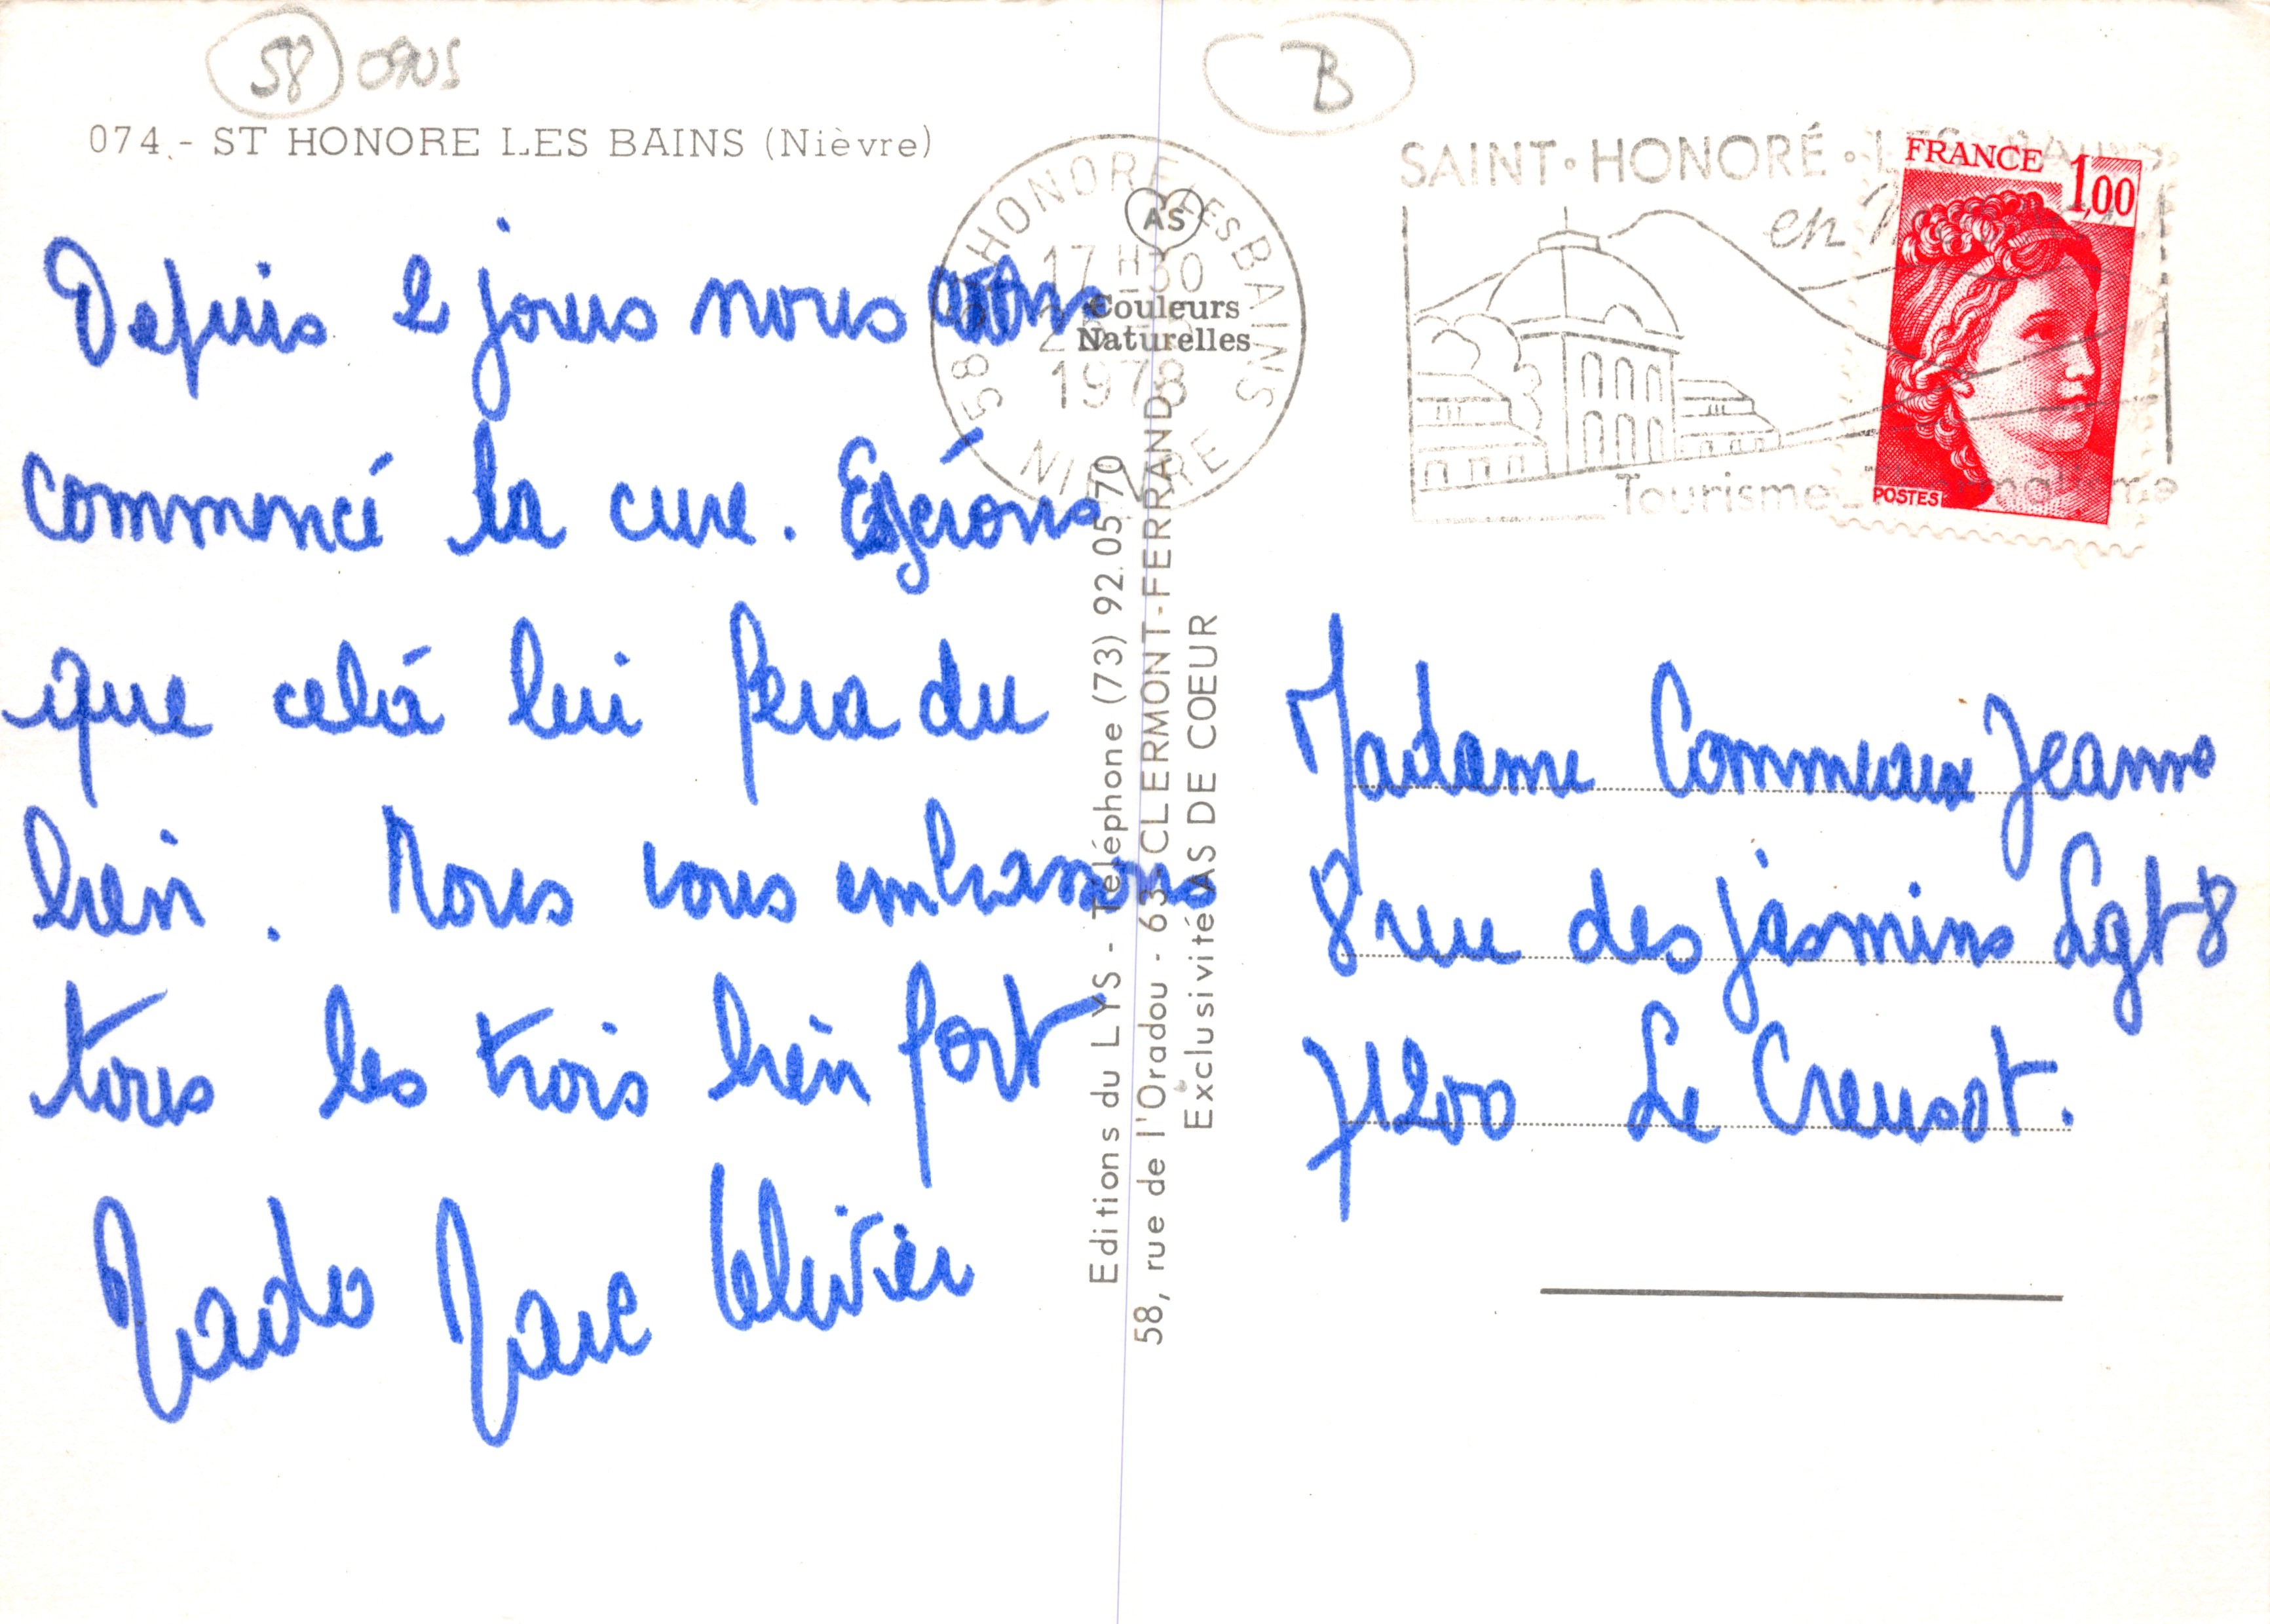 58 ons
B
074.- ST HONORE LES BAINS (Nièvre)
Depuis 2 jours nous avons
commencé la cure. Espérons
que celà lui fera du
bien. Nous vous embrassons
tous les trois bien fort
Mado Marc Olivier
58 ST HONORE LES BAINS
17 H 30
1978
NIEVRE
AS
Couleurs
Naturelles
Editions du LYS - Téléphone (73) 92.05.70
58, rue de l'Oradou - 63-CLERMONT-FERRAND
Exclusivité AS DE COEUR
SAINT·HONORÉ·LES BAINS
en
Tourisme
FRANCE 1,00
POSTES
Madame Commeaux Jeanne
8 rue des jasmins Lgt 8
71200 Le Creusot.